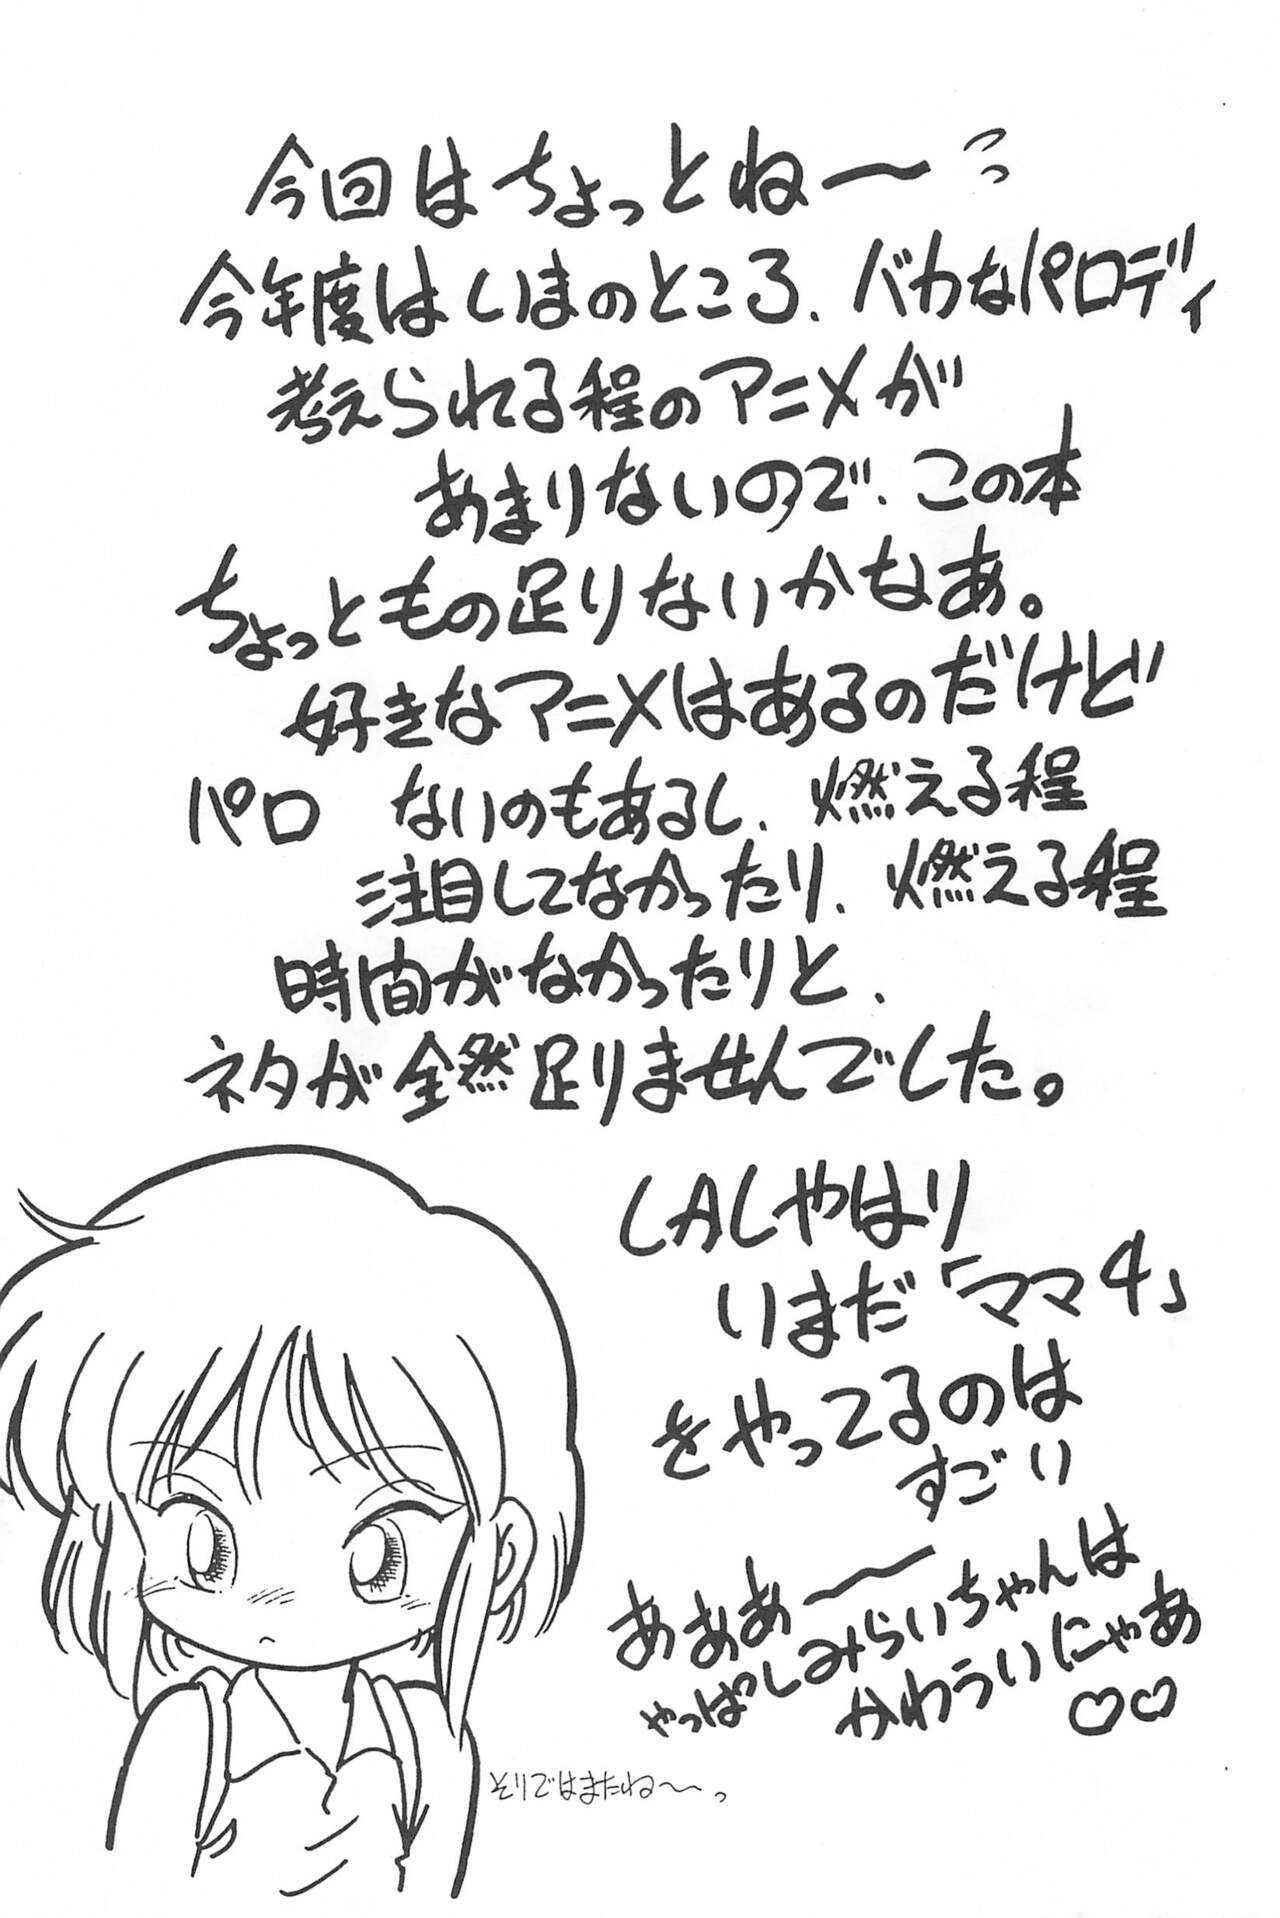 今回はちょっとね〜っ
今年度はいまのところ、バカなパロディ
考えられる程のアニメが
あまりないので、この本
ちょっともの足りないかなあ。
好きなアニメはあるのだけど
パロ ないのもあるし、燃える程
注目してなかったり、燃える程
時間がなかったりと、
ネタが全然足りませんでした。
しかしやはり
いまだ「ママ4」
をやってるのは
すごい
あああ〜
やっぱしみらいちゃんは
かわういにゃあ
♡♡
そいではまたね〜っ